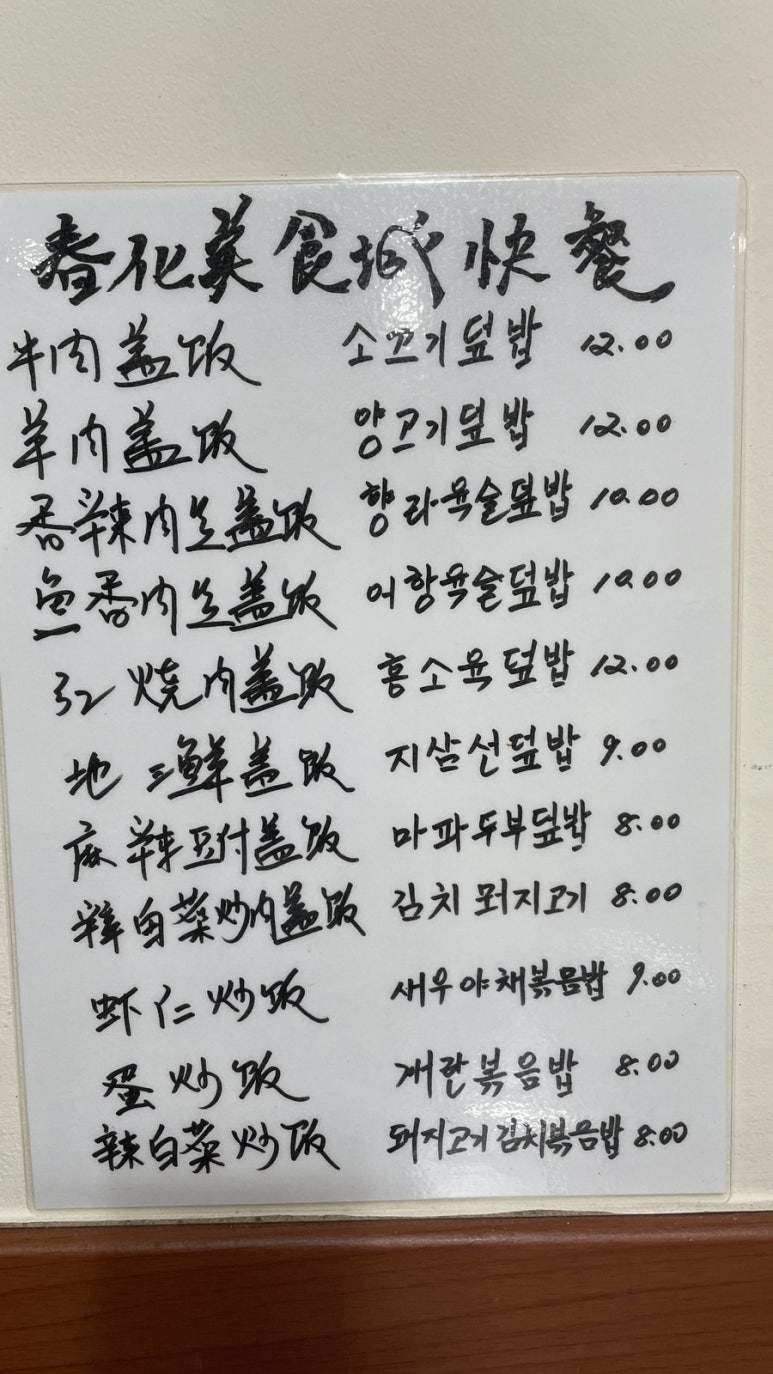 春化美食城快餐
牛肉盖饭 소고기덮밥 12.00
羊肉盖饭 양고기덮밥 12.00
香辣肉丝盖饭 향라육슬덮밥 10.00
鱼香肉丝盖饭 어향육슬덮밥 10.00
红烧肉盖饭 홍소육덮밥 12.00
地三鲜盖饭 지삼선덮밥 9.00
麻辣豆付盖饭 마파두부덮밥 8.00
辣白菜炒肉盖饭 김치 뙈지고기 8.00
虾仁炒饭 새우야채볶음밥 9.00
蛋炒饭 계란볶음밥 8.00
辣白菜炒饭 돼지고기김치볶음밥 8.00